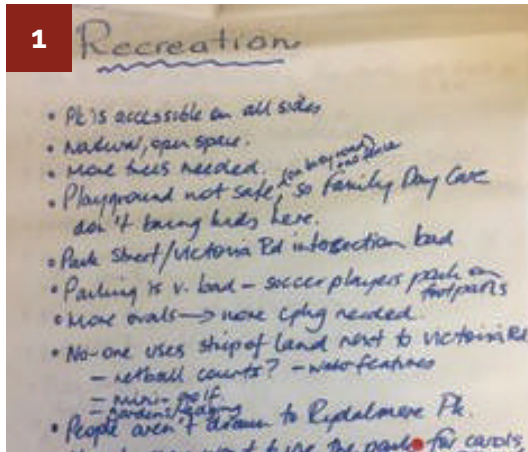 1
Recreation
• Pk is accessible on all sides
• Natural, open space.
• More trees needed.
• Playground not safe, so Family Day Care
don't bring kids here.
• Park Street/Victoria Rd intersection bad
• Parking is v. bad – soccer players park on
footpaths
• More ovals → more cpkg needed.
• No-one uses strip of land next to Victoria Rd
– netball courts? – water features
– mini-golf
• People aren't drawn to Rydalmere Pk.
the park for carols,